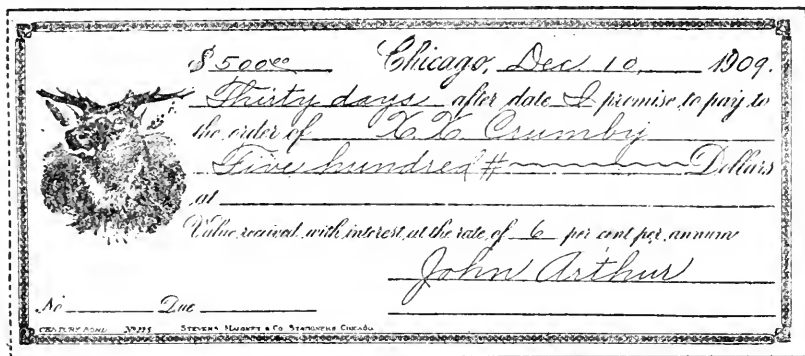 $500.00 Chicago, Dec 10, 1909.
Thirty days after date I promise to pay to
the order of X.X. Crumby
Five hundred # Dollars
at
Value received with interest at the rate of 6 per cent per annum
John Arthur
No Due
CENTURY BOND No 225 STEVENS, MALONEY & CO. STATIONERS CHICAGO